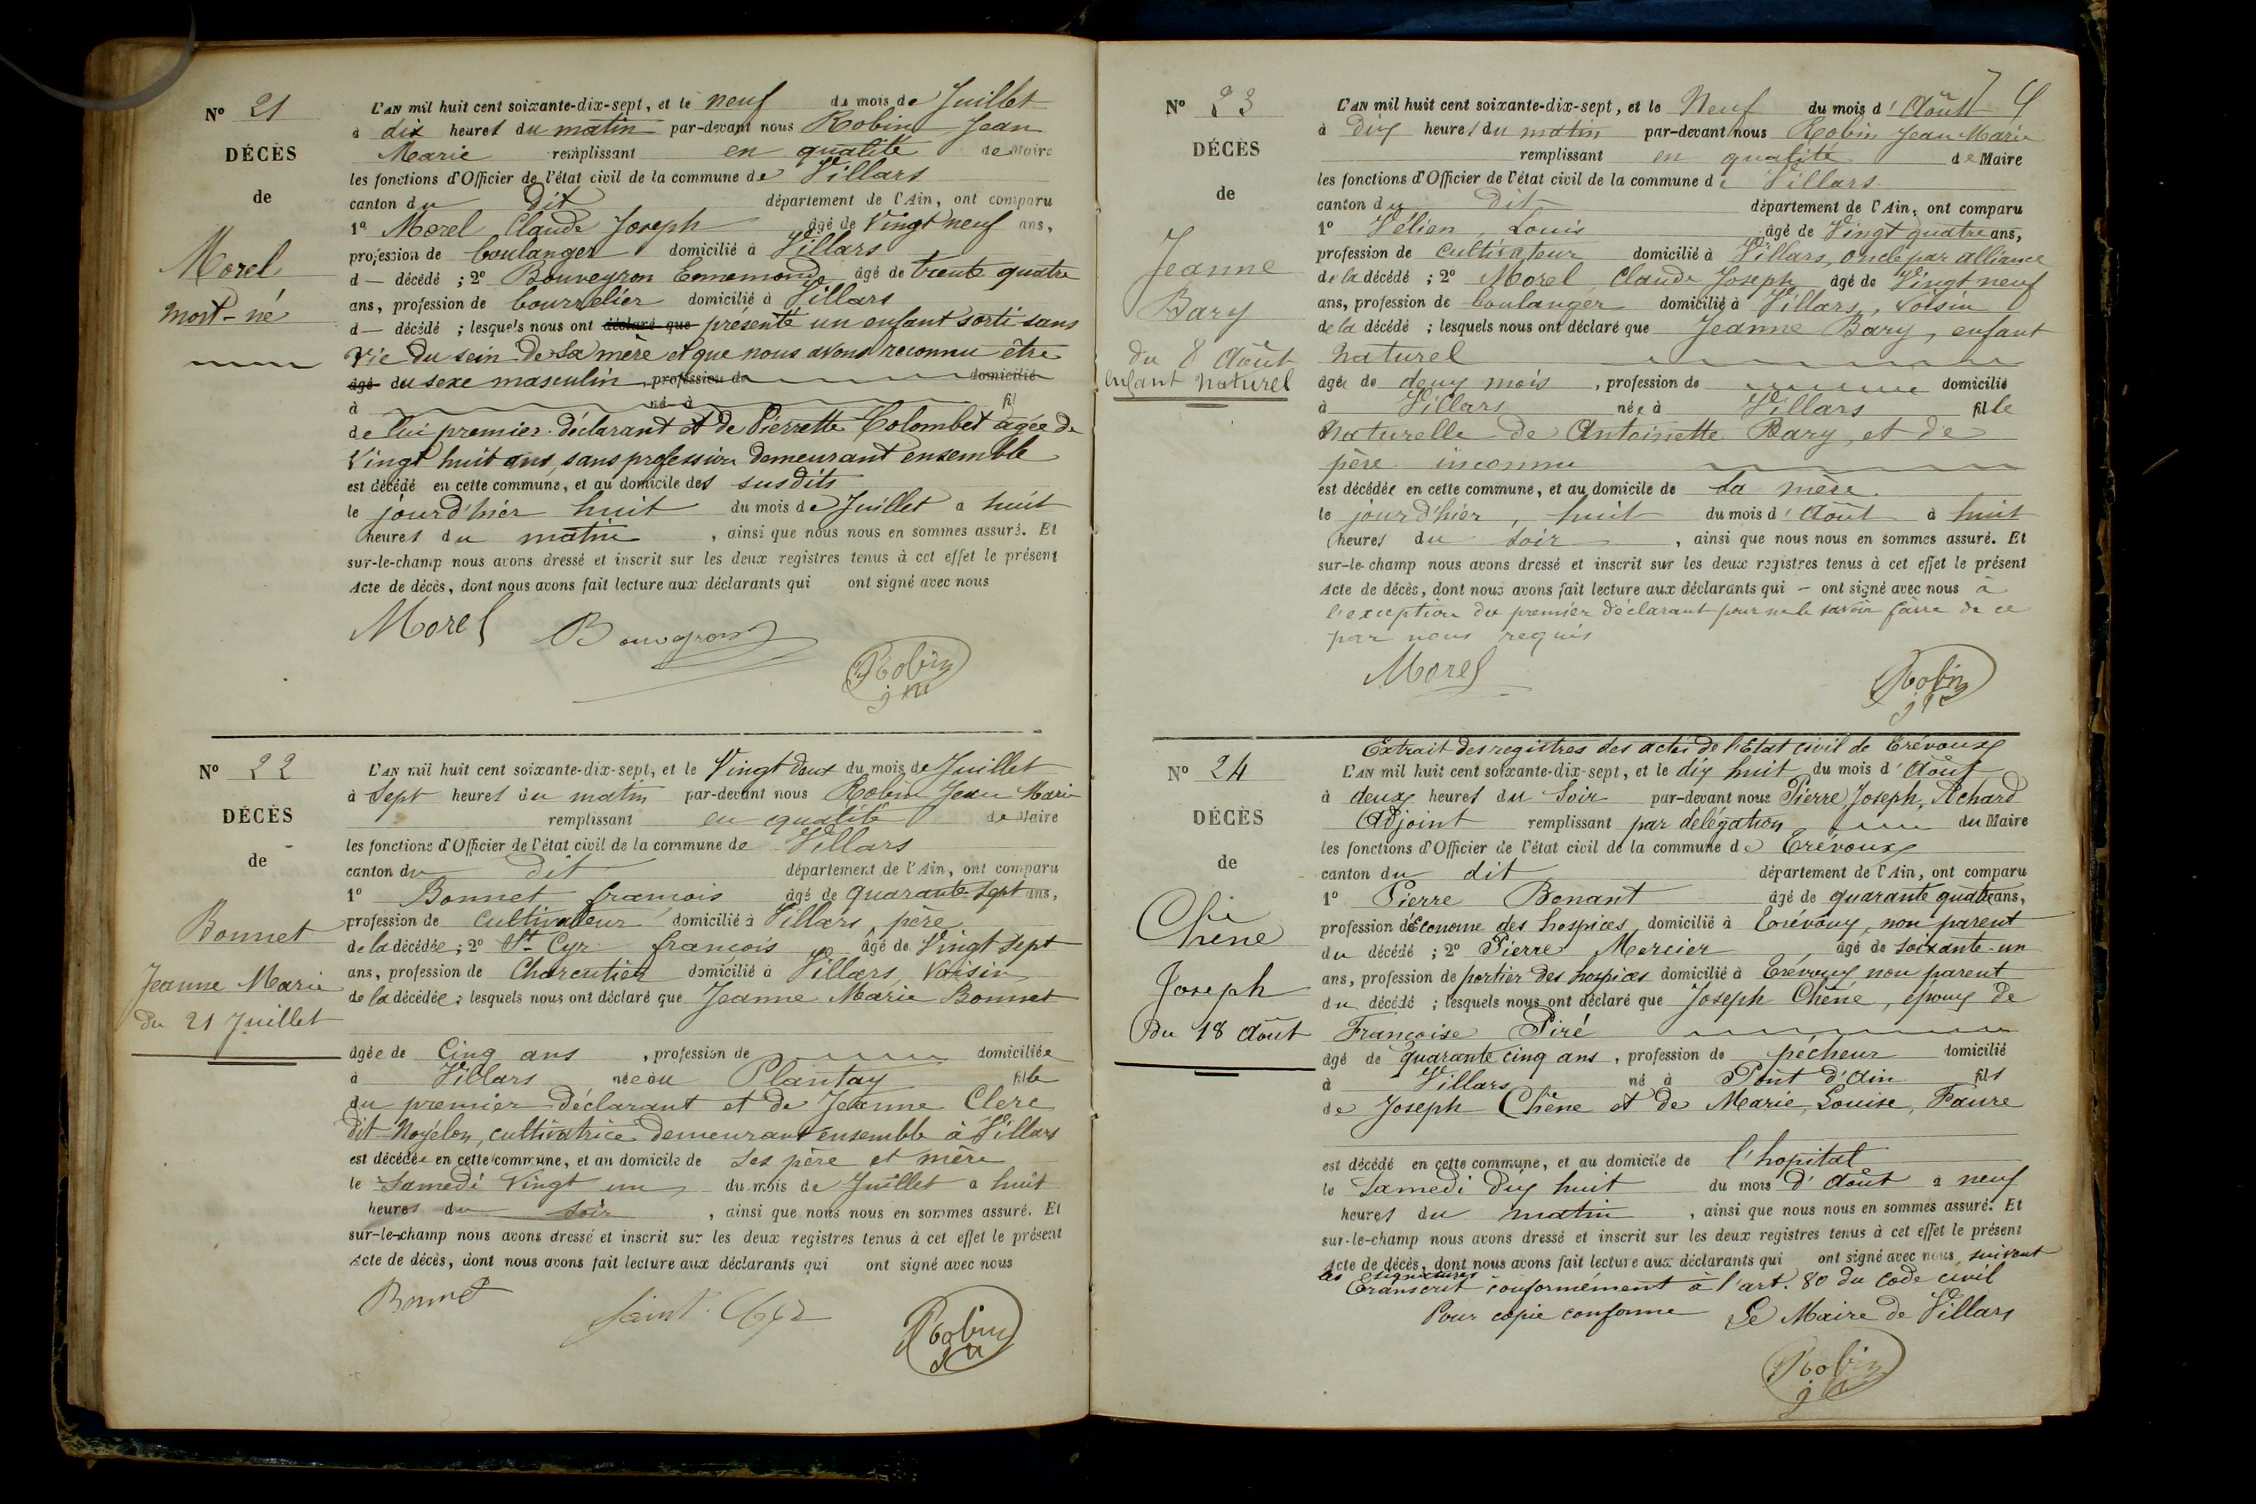 Nº 21
DÉCÈS
de
Morel
mort-né
L'AN mil huit cent soixante-dix-sept, et le neuf du mois de Juillet
à dix heures du matin par-devant nous Robin Jean
Marie remplissant en qualité de Maire
les fonctions d'Officier de l'état civil de la commune de Villars
canton du dit département de l'Ain, ont comparu
1º Morel Claude Joseph âgé de Vingt neuf ans,
profession de boulanger domicilié à Villars
d — décédé ; 2º Bouveyron Ennemond âgé de trente quatre
ans, profession de bourrelier domicilié à Villars
d — décédé ; lesquels nous ont déclaré que présenté un enfant sorti sans
vie du sein de sa mère et que nous avons reconnu être
âgé du sexe masculin, profession de domicilié
à né à fil
de lui premier déclarant et de Pierrette Colombet âgée de
Vingt huit ans, sans profession demeurant ensemble
est décédé en cette commune, et au domicile des susdits
le jourd'hier huit du mois de Juillet à huit
heures du matin, ainsi que nous nous en sommes assuré. Et
sur-le-champ nous avons dressé et inscrit sur les deux registres tenus à cet effet le présent
Acte de décès, dont nous avons fait lecture aux déclarants qui ont signé avec nous
Morel Bouveyron Robin
Nº 22
DÉCÈS
de
Bonnet
Jeanne Marie
du 21 Juillet
L'AN mil huit cent soixante-dix-sept, et le Vingt deux du mois de Juillet
à Sept heures du matin par-devant nous Robin Jean Marie
remplissant en qualité de Maire
les fonctions d'Officier de l'état civil de la commune de Villars
canton du dit département de l'Ain, ont comparu
1º Bonnet francois âgé de quarante sept ans,
profession de cultivateur domicilié à Villars, père
de la décédée ; 2º St Cyr francois âgé de Vingt sept
ans, profession de Charcutier domicilié à Villars, voisin
de la décédée ; lesquels nous ont déclaré que Jeanne Marie Bonnet
âgée de Cinq ans, profession de domiciliée
à Villars née au Plantay fille
du premier déclarant et de Jeanne Clerc
dit Noyélon, cultivatrice demeurant ensemble à Villars
est décédée en cette commune, et au domicile de ses père et mère
le Samedi Vingt un du mois de Juillet à huit
heures du soir, ainsi que nous nous en sommes assuré. Et
sur-le-champ nous avons dressé et inscrit sur les deux registres tenus à cet effet le présent
Acte de décès, dont nous avons fait lecture aux déclarants qui ont signé avec nous
Bonnet Saint Cyr Robin
74
Nº 23
DÉCÈS
de
Jeanne
Bary
du 8 Août
enfant naturel
L'AN mil huit cent soixante-dix-sept, et le Neuf du mois d'Août
à Dix heures du matin par-devant nous Robin Jean Marie
remplissant en qualité de Maire
les fonctions d'Officier de l'état civil de la commune de Villars
canton du Dit département de l'Ain, ont comparu
1º Vélien, Louis âgé de Vingt quatre ans,
profession de cultivateur domicilié à Villars, oncle par alliance
de la décédé ; 2º Morel Claude Joseph âgé de Vingt neuf
ans, profession de boulanger domicilié à Villars, Voisin
de la décédé ; lesquels nous ont déclaré que Jeanne Bary, enfant
naturel
âgée de deux mois, profession de domicilié
à Villars née à Villars fille
naturelle de Antoinette Bary, et de
père inconnu
est décédée en cette commune, et au domicile de sa mère
le jour d'hier, huit du mois d'Août à huit
heures du soir, ainsi que nous nous en sommes assuré. Et
sur-le-champ nous avons dressé et inscrit sur les deux registres tenus à cet effet le présent
Acte de décès, dont nous avons fait lecture aux déclarants qui — ont signé avec nous à
l'exception du premier déclarant pour ne le savoir faire de ce
par nous requis
Morel Robin
Nº 24
DÉCÈS
de
Chêne
Joseph
Du 18 Août
Extrait des registres des actes de l'Etat civil de Trévoux
L'AN mil huit cent soixante-dix-sept, et le dix huit du mois d'Août
à deux heures du Soir par-devant nous Pierre, Joseph, Achard
Adjoint remplissant par délégation du Maire
les fonctions d'Officier de l'état civil de la commune de Trévoux
canton du dit département de l'Ain, ont comparu
1º Pierre Bonant âgé de quarante quatre ans,
profession d'Econome des hospices domicilié à Trévoux, non parent
du décédé ; 2º Pierre Mercier âgé de soixante-un
ans, profession de portier des hospices domicilié à Trévoux non parent
du décédé ; lesquels nous ont déclaré que Joseph Chêne, époux de
Françoise Piré
âgé de quarante cinq ans, profession de pêcheur domicilié
à Villars né à Pont d'Ain fils
de Joseph Chêne et de Marie, Louise, Faure
est décédé en cette commune, et au domicile de l'hopital
le Samedi dix huit du mois d'Août à neuf
heures du matin, ainsi que nous nous en sommes assuré. Et
sur-le-champ nous avons dressé et inscrit sur les deux registres tenus à cet effet le présent
Acte de décès, dont nous avons fait lecture aux déclarants qui ont signé avec nous, suivent
les signatures
Transcrit conformément à l'art. 80 du code civil
Pour copie conforme Le Maire de Villars
Robin